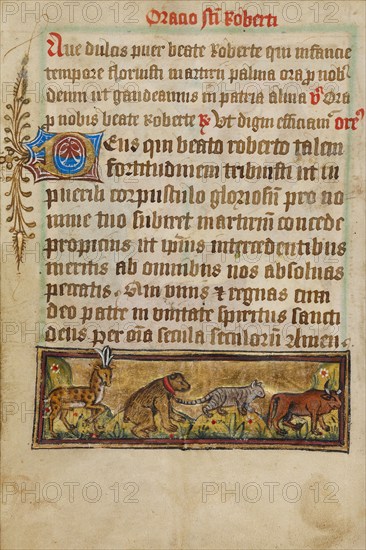 Oracio sti Roberti
Aue dulcis puer beate Roberte qui infancie
tempore floruisti martirii palma ora p nob
deum ut gaudeamus in patria alma V Ora
p nobis beate Roberte R Ut digni efficiam Ore
Deus qui beato roberto talem
fortitudinem tribuisti ut in
puerili corpusculo gloriosum pro no
mine tuo subiret martirium concede
propicius ut ipius intercedentibus
meritis ab omnibus nos absoluas
peccatis. Qui viuis et regnas cum
deo patre in vnitate spiritus sancti
deus per oia secula seculorum Amen
PHOTO 12